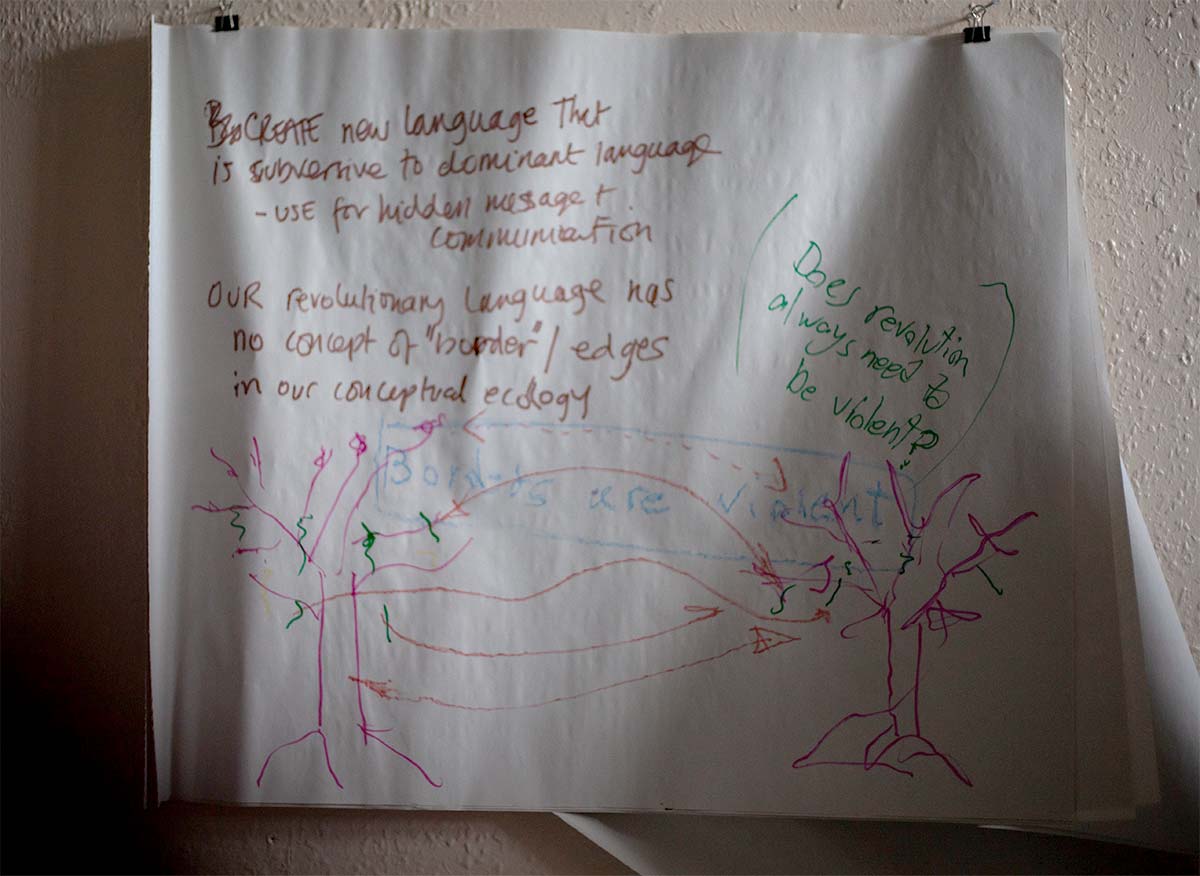 CREATE new language That
is subversive to dominant language
- USE for hidden message +
communication
OUR revolutionary language has
no concept of "border" / edges
in our conceptual ecology
(Does revolution
always need to
be violent?)
Borders are violent